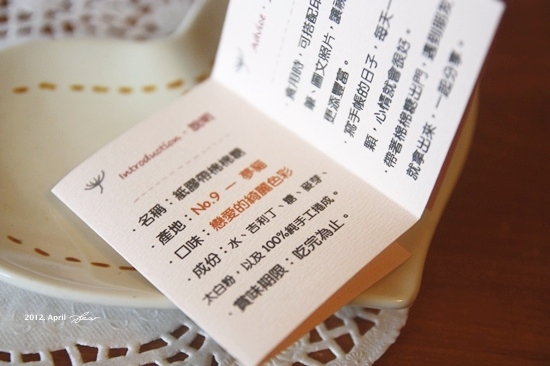 Introduction · 說明
· 名稱：紙膠帶棉棉糖
· 產地：No.9 — 夢貓
· 口味：戀愛的綺麗色彩
· 成份：水、吉利丁、糖、碳芽、
太白粉，以及100%純手工捲成。
· 賞味期限：吃完為止。
Advice ·
· 食用時，可搭配
筆、圖文照片，讓
更添豐富。
· 寫手帳的日子，每天一
顆，心情就會很好。
· 帶著棉棉糖出門，遇到朋友
就拿出來，一起分享。
2012, April